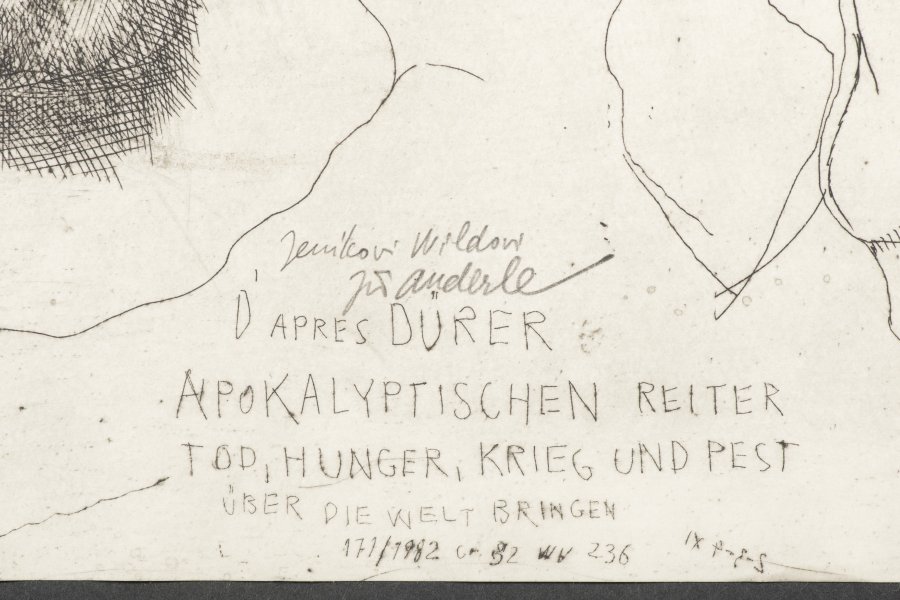 Jeníkovi Wildovi
Jiří Anderle
D'APRES DÜRER
APOKALYPTISCHEN REITER
TOD, HUNGER, KRIEG UND PEST
ÜBER DIE WELT BRINGEN
171/1982 WV 236